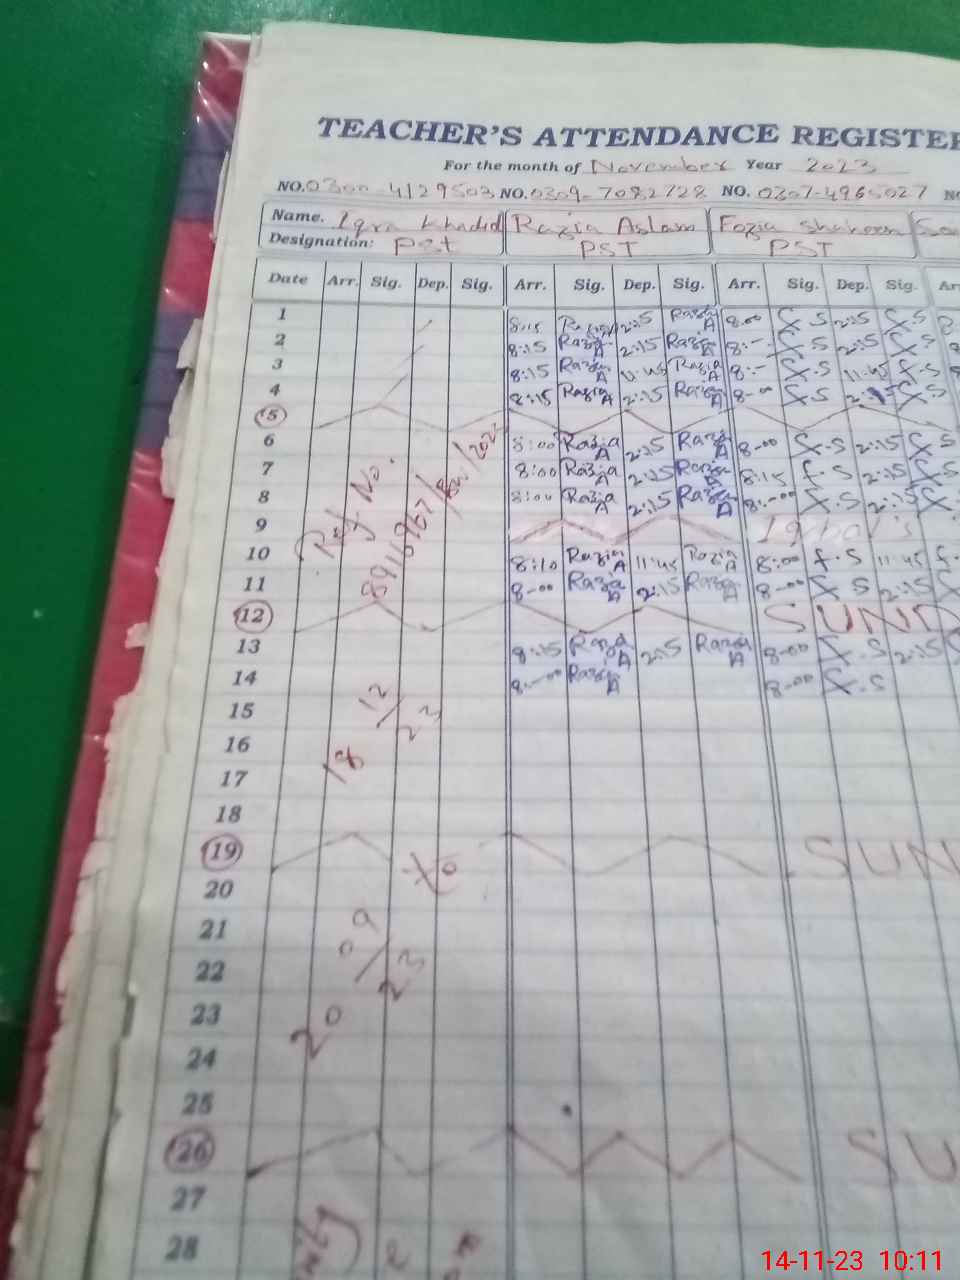 TEACHER'S ATTENDANCE REGISTE
For the month of November Year 2023
NO. 0300-4129503 NO. 0309-7082728 NO. 0307-4965027 N
Name. Iqra Khadid Razia Aslam Fozia Shaheen
Designation: PSt PST PST
Date Arr. Sig. Dep. Sig. Arr. Sig. Dep. Sig. Arr. Sig. Dep. Sig. Ar
1 8:15 Razia A 2:15 Razia A 8:00 f.S 2:15 f.S
2 8:15 Razia A 2:15 Razia A 8:- f.S 2:15 f.S
3 8:15 Razia A 11:45 Razia A 8:- f.S 11:45 f.S
4 8:15 Razia A 2:15 Razia A 8-00 f.S 2:15 f.S
5
6 8:00 Razia A 2:15 Razia A 8-00 f.S 2:15 f.S
7 8:00 Razia A 2:15 Razia A 8:15 f.S 2:15 f.S
8 8:00 Razia A 2:15 Razia A 8:-00 f.S 2:15 f.
9 Iqbal's
10 8:10 Razia A 11:45 Razia A 8:00 f.S 11:45 f.
11 8-00 Razia A 2:15 Razia A 8-00 f.S 2:15
12 SUND
13 8:15 Razia A 2:15 Razia A 8-00 f.S 2:15
14 8:-00 Razia A 8-00 f.S
15
16
17
18
19 SUN
20
21
22
23
24
25
26 SU
27
28
Ref No.
18/12/23
to
20/09/23
14-11-23 10:11